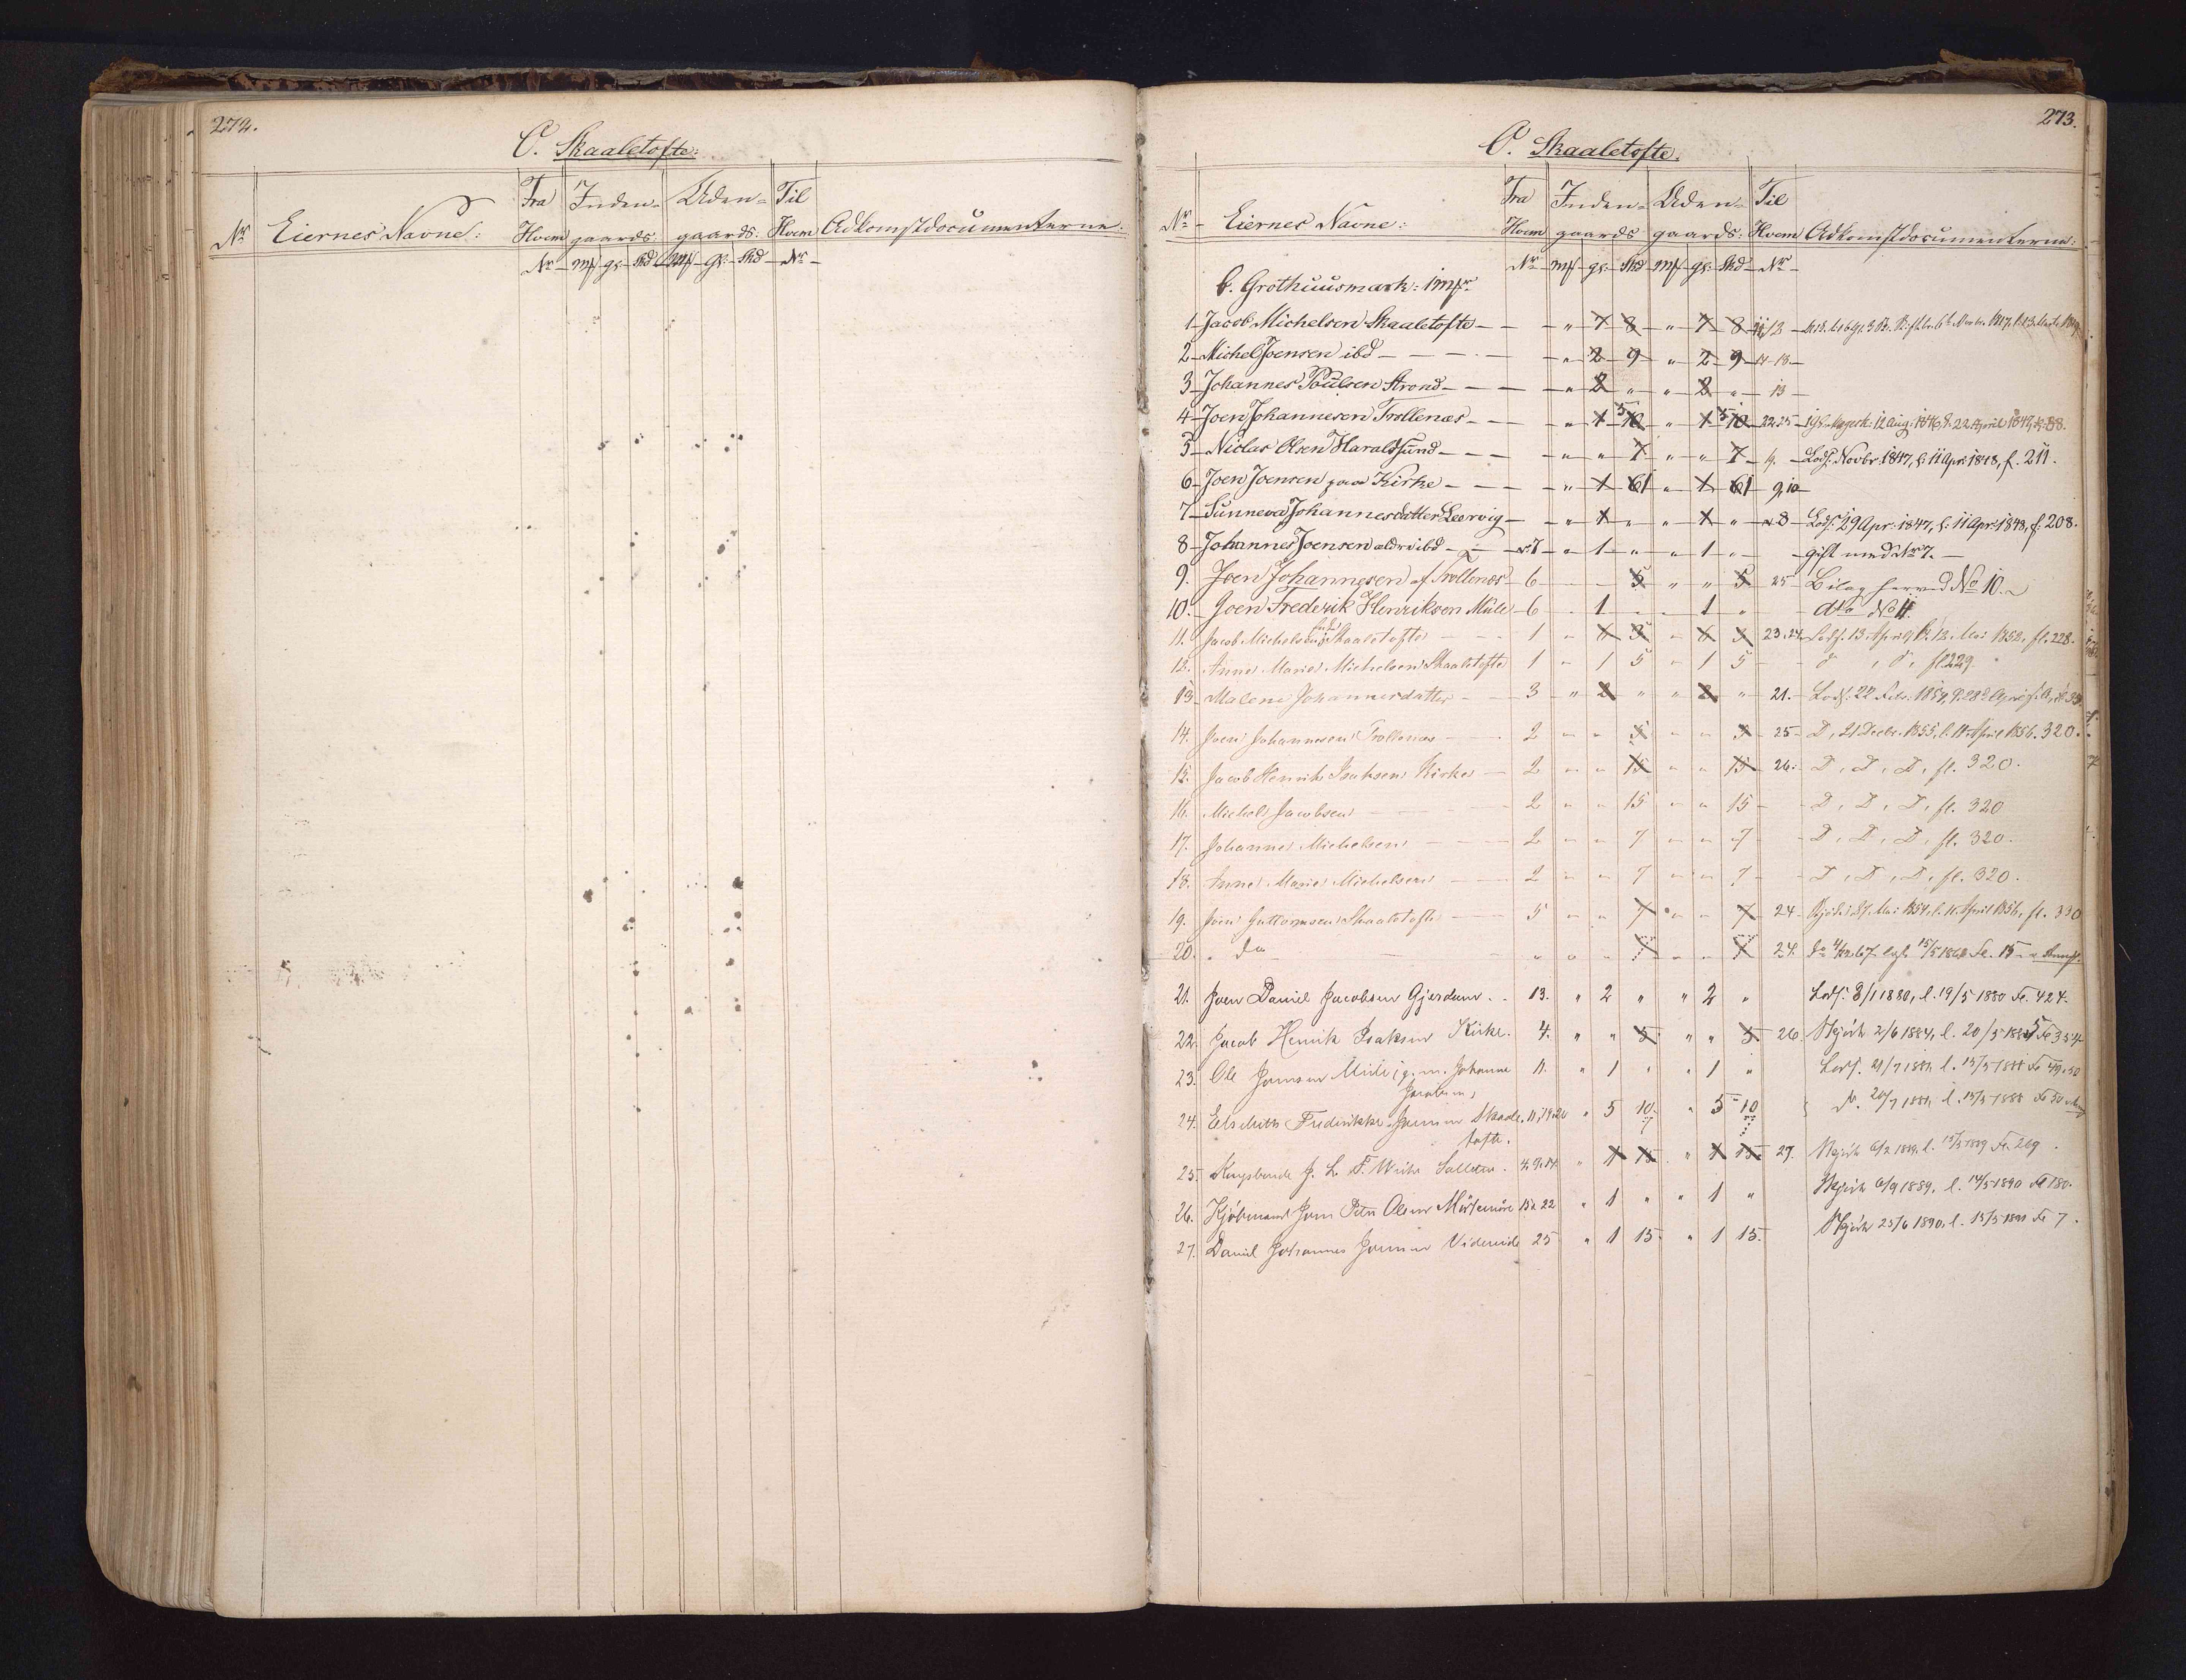 272.
C. Skaaletofte:
Fra Inden- Uden- Til
Nr Eiernes Navne: Hvem gaards gaards: Hvem Adkomstdocumenterne:
Nr Mk gl: Skd Mk gl: Skd Nr
273.
C. Skaaletofte.
Fra Inden- Uden- Til
Nr Eiernes Navne: Hvem gaards gaards: Hvem Adkomstdocumenterne:
Nr Mk gl: Skd Mk gl: Skd Nr
b. Grothuusmark: 1 mk
1 Jacob Michelsen Skaaletofte " 7 8 " 7 8 11,12
2 Michel Joensen ibd " 2 9 " 2 9 14-18
3 Johannes Poulsen Strond " 2 " " 2 " 13
4 Joen Johannesen Trollenæs " 1 10 " 1 10 22.25 12 Aug: 1846, l: 22 April 1847, f: 88.
5 Niclas Olsen Haraldsund " " 7 " " 7 19 Lods. Novbr. 1847, l: 11 Apr: 1848, f. 211.
6 Joen Joensen paa Kirke " 1 61 " 1 61 9,10
7 Sunneva Johannesdatter Leervig " 1 " " 1 " 8 Lods. 29 Apr: 1847, l: 11 Apr: 1848, f: 208.
8 Johannes Joensen ældre ibd 7 " 1 " " 1 " gift med Nr 7.
9. Joen Johannesen af Trollenæs 6 5 " " 5 25 Bilag herved No 10.
10. Joen Frederik Henriksen Mule 6 1 " 1 " dto No 11.
11. Jacob Michelsen Skaaletofte 1 " 6 3 " 6 3 23.24 Lods. 13. April 12. Mai 1852, fl. 228.
12. Anne Marie Michelsen Skaaletofte 1 " 1 5 " 1 5 fl 229.
13. Malene Johannesdatter 3 " 2 " " 2 " 21. Lods. 22 Febr. 1854, l. 28 April
14. Joen Johannesen Trollenæs 2 " " 5 " " 5 25 D, 21 Decbr. 1855, l. 11 April 1856. 320.
15. Jacob Henrik Isaksen Kirke 2 " " 15 " " 15 26. D, D, D, fl. 320.
16. Michel Jacobsen 2 " " 15 " " 15 D, D, D, fl. 320
17. Johanne Michelsen 2 " " 7 " " 7 D, D, D, fl. 320.
18. Anne Marie Michelsen 2 " " 7 " " 7 D, D, D, fl. 320.
19. Joen Guttormsen Skaaletofte 5 " " 7 " " 7 24 Mai 1854, l. 11 April 1856, fl. 330
20. " Do " " " 7 " " 7 24. 15/5 1868 Fo. 15
21. Joen Daniel Jacobsen Gjerdum 13. " 2 " " 2 " Lods. 8/1 1880, l. 19/5 1880 Fo. 424.
22. Jacob Henrik Isaksen Kirke. 4. " " 5 " " 5 26. Skjøde 2/6 1884, l. 20/5 1885 Fo 354
23. Ole Joensen Mule, g. m. Johanne 11. " 1 " " 1 " Lods. 21/7 1887, l. 15/5 1888 Fo 49-50
Jacobsen,
24. Elsebeth Fredrikke Joensen Skaale- 11,19,20 " 5 10 " 5 10 Do. 20/7 1887, l. 15/5 1888 Fo 50
tofte.
25. Kongsbonde J. L. F. Weihe Selletræ 4,9,14 " 1 15 " 1 15 27. Skjøde 6/2 1889, l. 15/5 1889 Fo. 209.
26. Kjøbmand Joen Peter Olsen Morskranes 15,22 " 1 " " 1 " Skjøde 6/9 1889, l. 14/5 1890 Fo 180.
27. Daniel Johannes Joensen Videreide 25 " 1 15 " 1 15. Skjøde 25/6 1890, l. 15/5 1891 Fo 7.